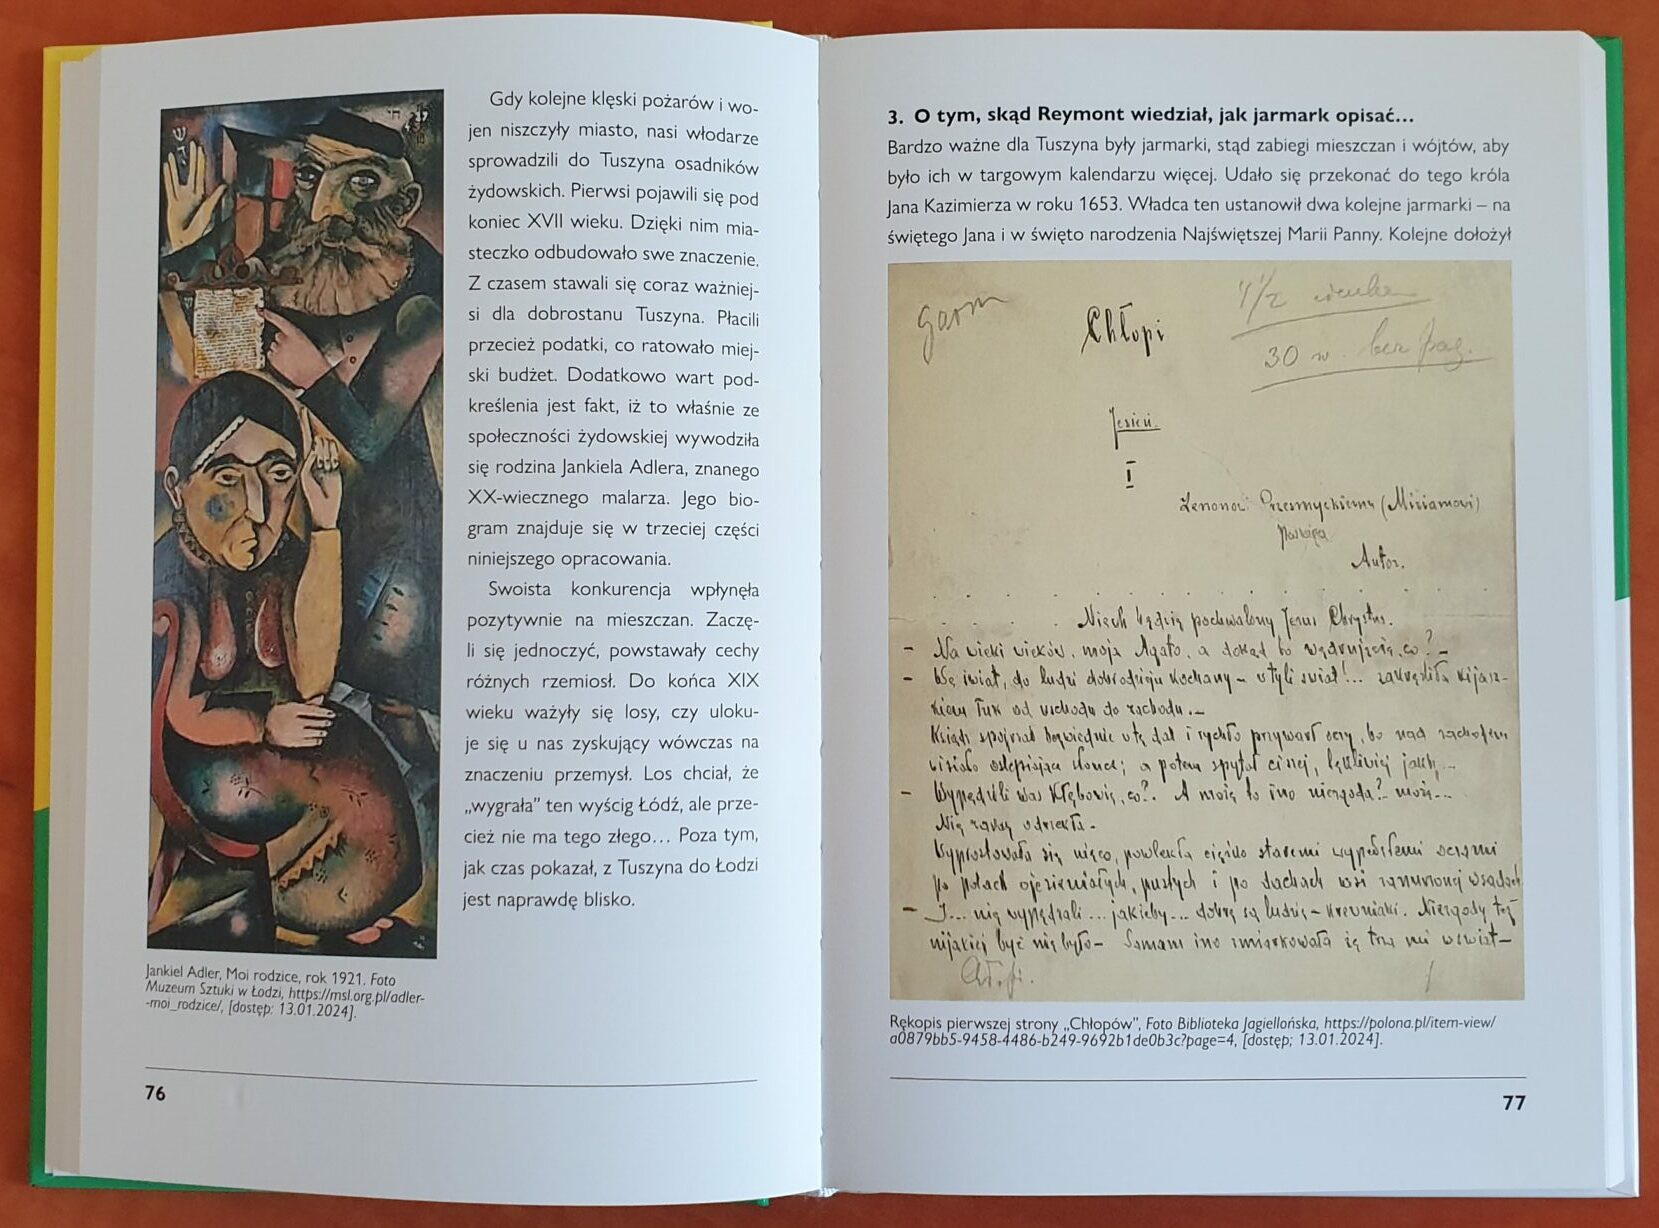 Gdy kolejne klęski pożarów i wo-
jen niszczyły miasto, nasi włodarze
sprowadzili do Tuszyna osadników
żydowskich. Pierwsi pojawili się pod
koniec XVII wieku. Dzięki nim mia-
steczko odbudowało swe znaczenie.
Z czasem stawali się coraz ważniej-
si dla dobrostanu Tuszyna. Płacili
przecież podatki, co ratowało miej-
ski budżet. Dodatkowo wart pod-
kreślenia jest fakt, iż to właśnie ze
społeczności żydowskiej wywodziła
się rodzina Jankiela Adlera, znanego
XX-wiecznego malarza. Jego bio-
gram znajduje się w trzeciej części
niniejszego opracowania.
Swoista konkurencja wpłynęła
pozytywnie na mieszczan. Zaczę-
li się jednoczyć, powstawały cechy
różnych rzemiosł. Do końca XIX
wieku ważyły się losy, czy uloku-
je się u nas zyskujący wówczas na
znaczeniu przemysł. Los chciał, że
„wygrała” ten wyścig Łódź, ale prze-
cież nie ma tego złego… Poza tym,
jak czas pokazał, z Tuszyna do Łodzi
jest naprawdę blisko.
Jankiel Adler, Moi rodzice, rok 1921. Foto
Muzeum Sztuki w Łodzi, https://msl.org.pl/adler-
-moi_rodzice/, [dostęp: 13.01.2024].
76
3. O tym, skąd Reymont wiedział, jak jarmark opisać…
Bardzo ważne dla Tuszyna były jarmarki, stąd zabiegi mieszczan i wójtów, aby
było ich w targowym kalendarzu więcej. Udało się przekonać do tego króla
Jana Kazimierza w roku 1653. Władca ten ustanowił dwa kolejne jarmarki – na
świętego Jana i w święto narodzenia Najświętszej Marii Panny. Kolejne dołożył
garm
Chłopi
30 w. bez pag.
Jesień.
I
Zenonowi Przesmyckiemu (Miriamowi)
Autor.
Niech będzie pochwalony Jezus Chrystus.
– Na wieki wieków, moja Agato, a dokąd to wędrujecie, co? –
– We świat, do ludzi dobrodzieju kochany – w tyli świat!... zakreśliła kijasz-
kiem łuk od wschodu do zachodu. –
Ksiądz spojrzał bezwiednie w tę dal i rychło przywarł oczy, bo nad zachodem
wisiało oślepiające słońce; a potem spytał ciszej, lękliwiej jakby...
– Wypędzili was Kłębowie, co?. A może to ino niezgoda?.. może...
Nie zaraz odrzekła.
Wyprostowała się nieco, powlekła ciężko staremi wypełzłemi oczami
po polach ojesieniałych, pustych i po dachach wsi zanurzonej w sadach
– I... nie wypędzali... jakieby... dobre są ludzie – krewniaki. Niezgody też
nijakiej być nie było – Samam ino zmiarkowała że trza mi w świat –
Rękopis pierwszej strony „Chłopów”, Foto Biblioteka Jagiellońska, https://polona.pl/item-view/
a0879bb5-9458-4486-b249-9692b1de0b3c?page=4, [dostęp; 13.01.2024].
77